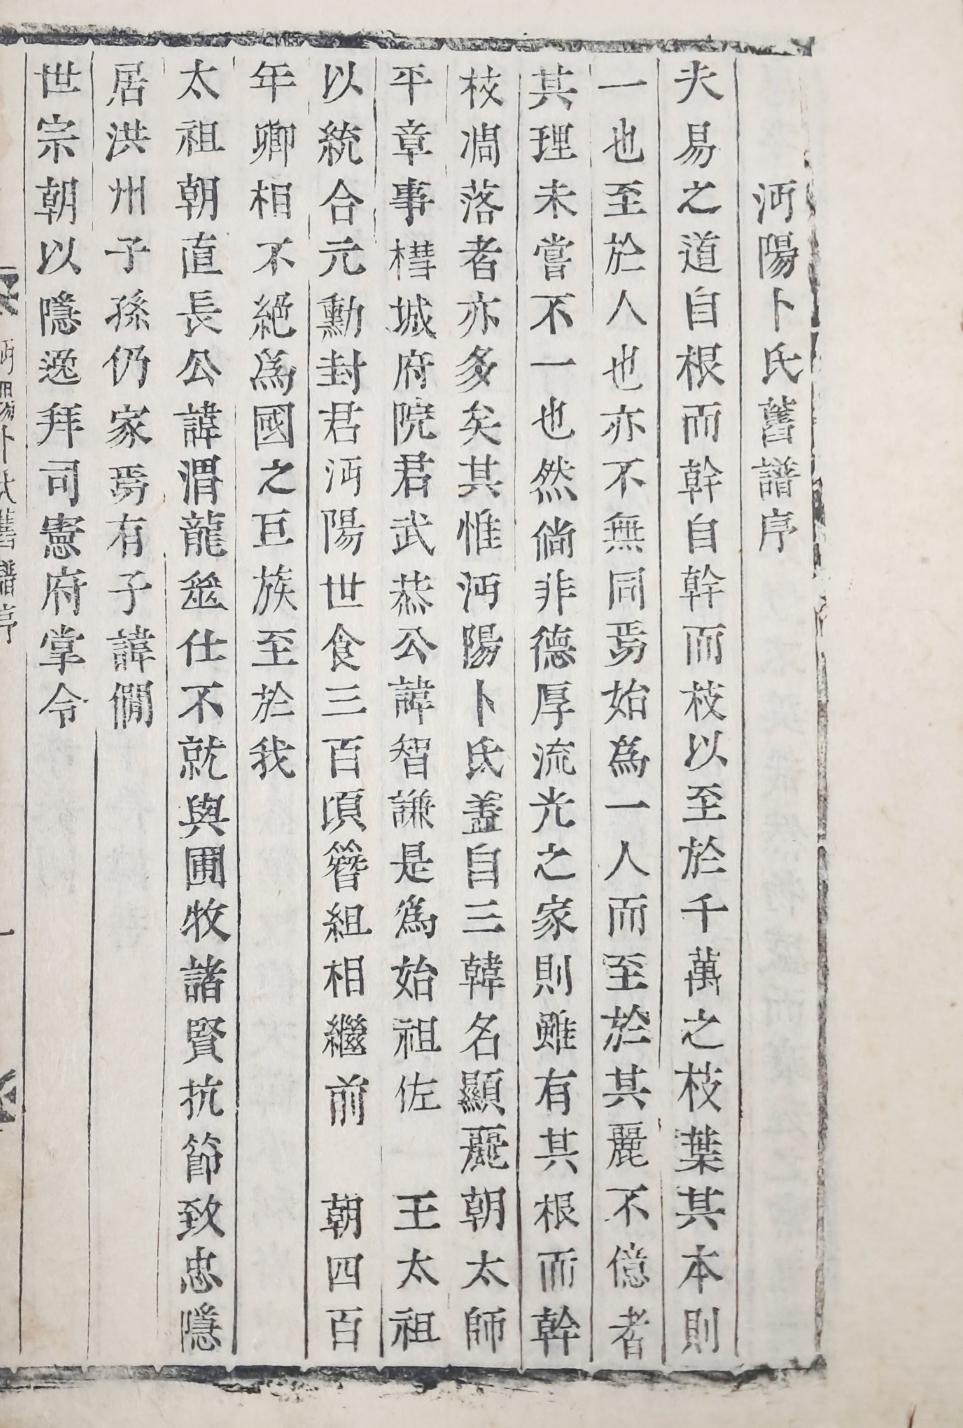 沔陽卜氏舊譜序
夫易之道自根而幹自幹而枝以至於千萬之枝葉其本則
一也至於人也亦不無同焉始爲一人而至於其麗不億者
其理未嘗不一也然倘非德厚流光之家則雖有其根而幹
枝凋落者亦多矣其惟沔陽卜氏盖自三韓名顯麗朝太師
平章事槥城府院君武恭公諱智謙是爲始祖佐 王太祖
以統合元勳封君沔陽世食三百頃簪組相繼前 朝四百
年卿相不絕爲國之巨族至於我
太祖朝直長公諱渭龍筮仕不就與圃牧諸賢抗節致忠隱
居洪州子孫仍家焉有子諱僩
世宗朝以隱逸拜司憲府掌令
沔陽卜氏舊譜序
一